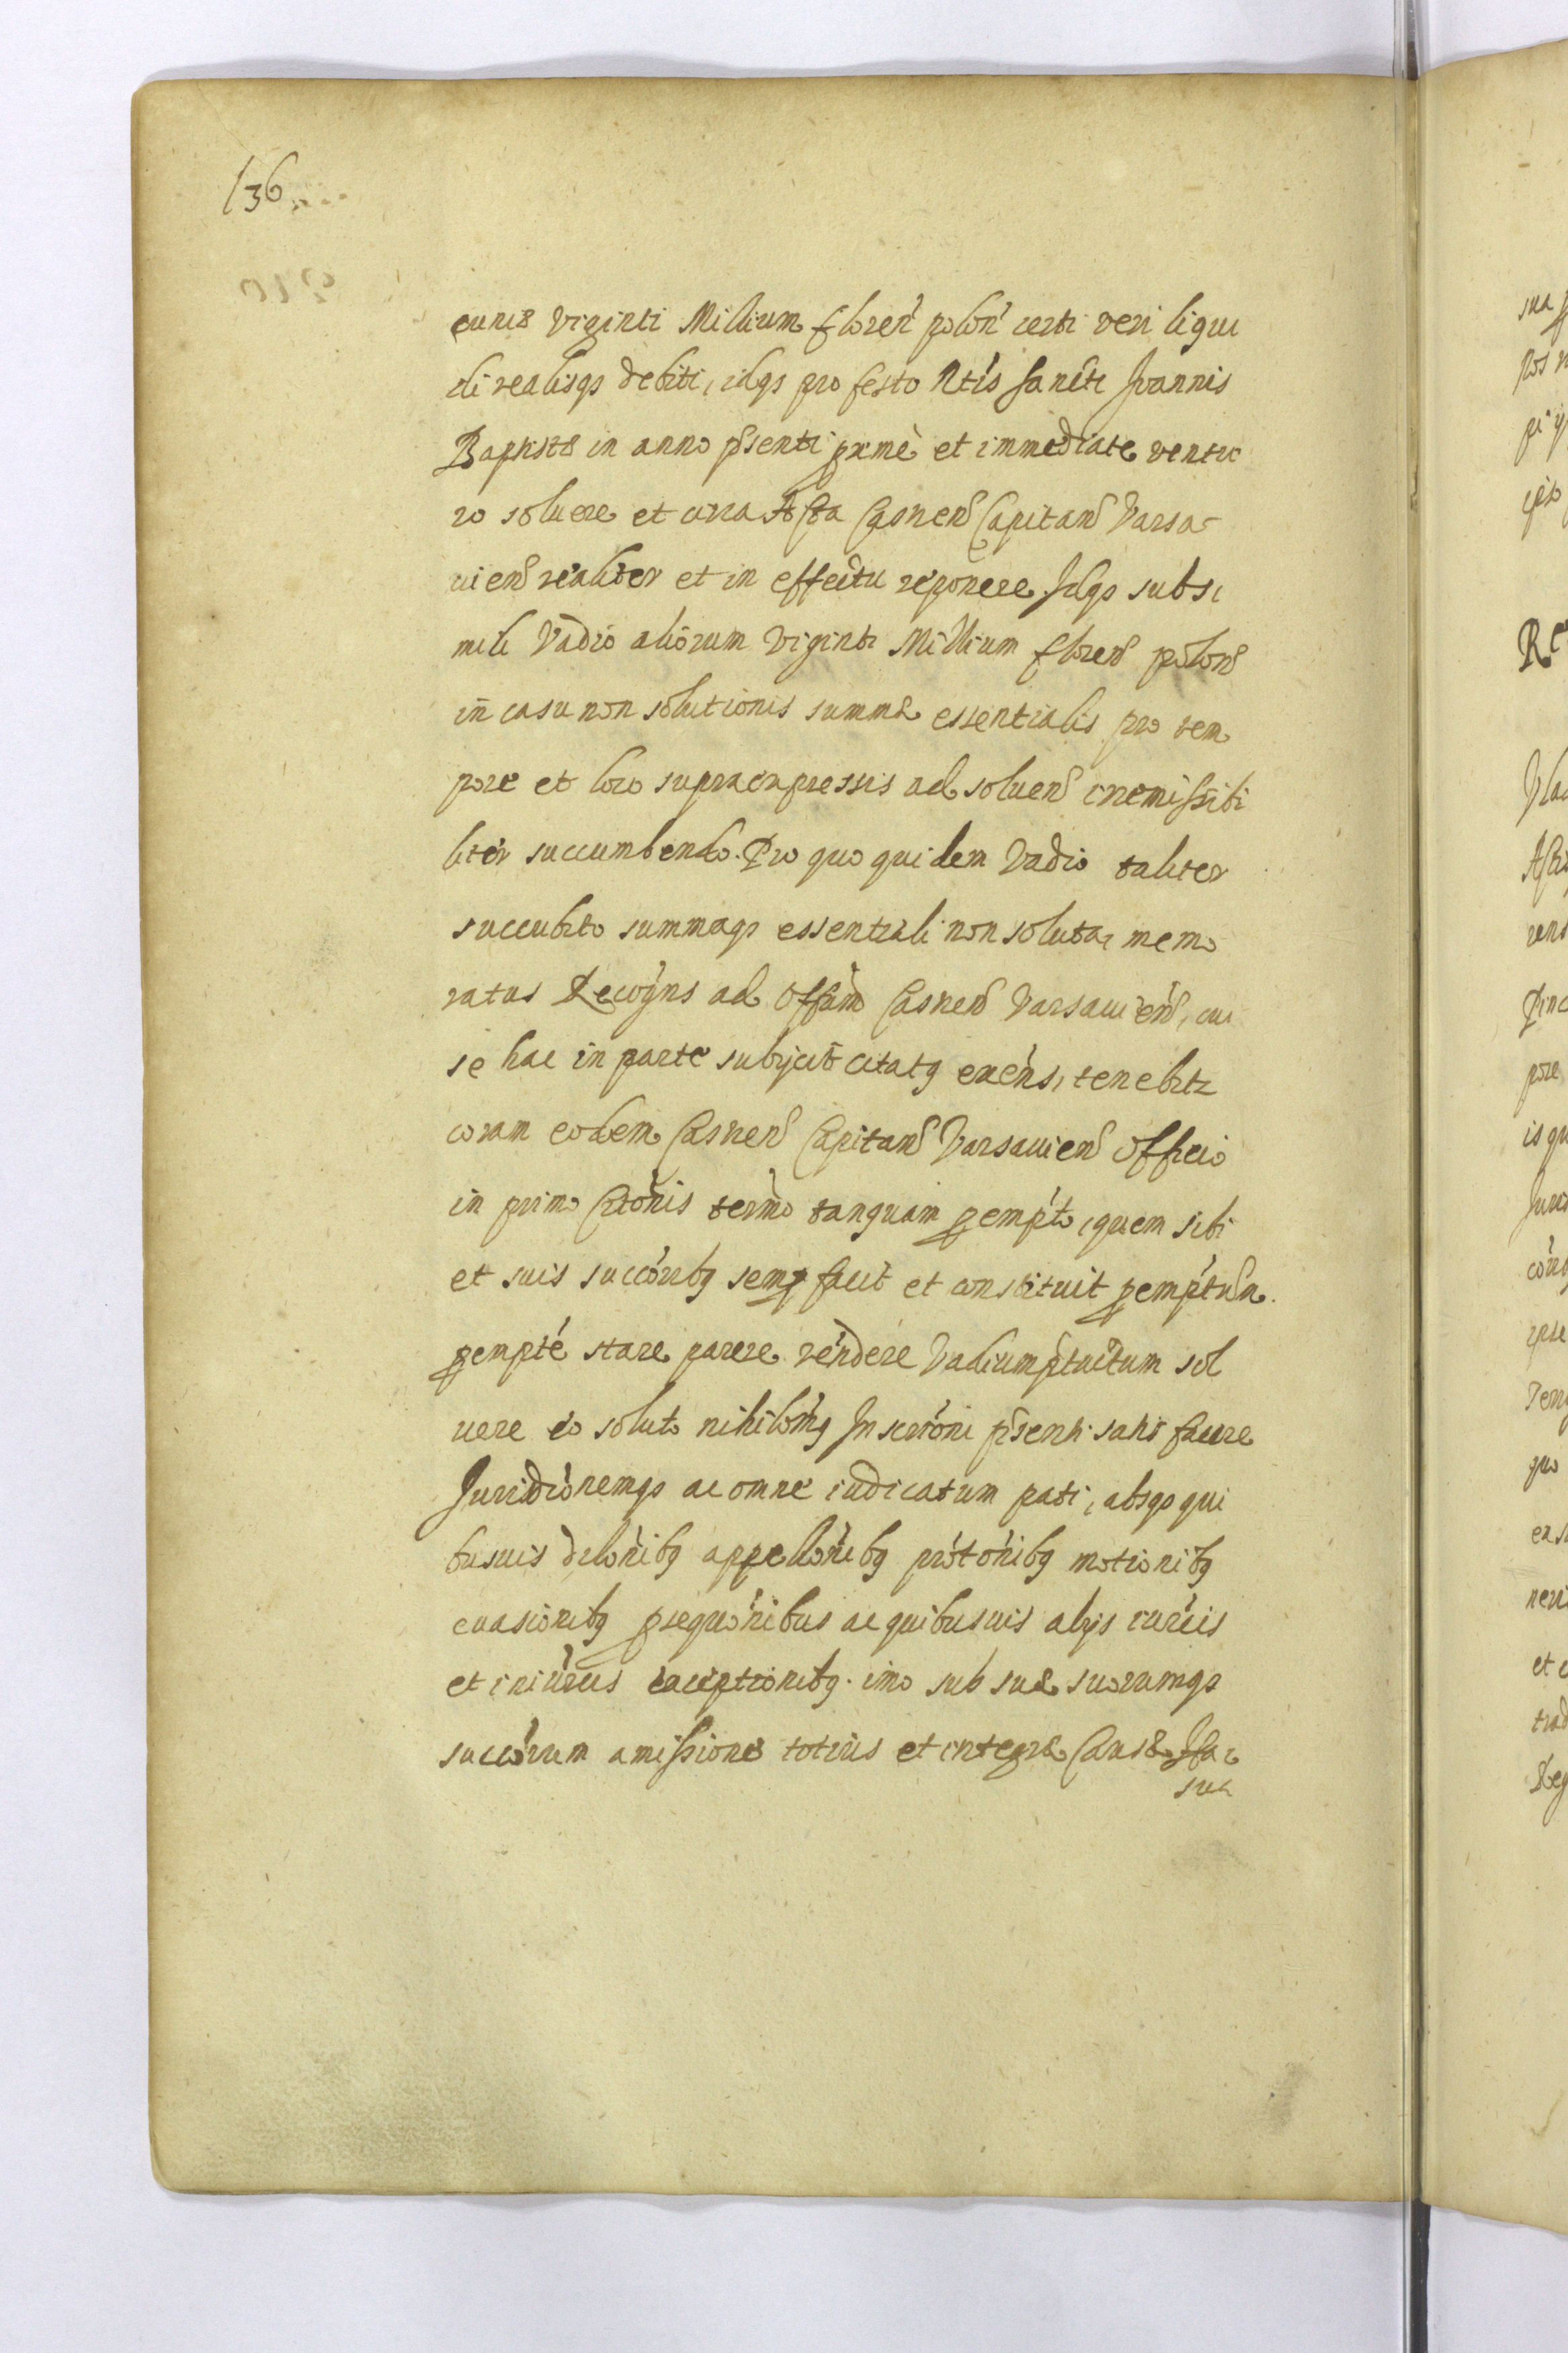 136
cuniæ viginti Millium floren polon certi veri liqui
di realisqꝫ debiti, idqꝫ pro festo Ntis Sancti Joannis
Baptistæ in anno pñsenti prmè et immediate ventu
ro soluere et circa Acta Casñen Capitan Varsa-
uien realiter et in effectu reponere. Idqꝫ sub si
mili Vadio aliorum viginti Millium floren polon
in casu non solutionis summæ essentialis pro tem
pore et loco supraexpressis ad soluen irremissibi
liter succumbendo. Pro quo quidem Vadio taliter
succubito summaqꝫ essentiali non soluta, memo
ratus Recogns ad Offum Casñen Varsauien, cui
se hac in parte subijcit citatꝰ exens, tenebitr
coram eodem Casñen Capitan Varsauien Officio
in primo Ctõnis termõ tanquam ꝑempto, quem sibi
et suis succõribꝰ semꝑ facit et constituit ꝑemptum
ꝑempté stare parere rendere Vadium ptactum sol
uere eo soluto nihilomꝰ Inscrõni pñsenti satis facere
Juridiõnemqꝫ ac omne iudicatum pati, absqꝫ qui
busuis delõnibꝰ appellõnibꝰ prótõnibꝰ motionibꝰ
euasionibꝰ ꝓsequõnibus ac quibusuis alijs iureis
et iniureis exceptionibꝰ. imo sub suæ suorumqꝫ
succõrum amissione totius et integræ Causæ Ifa
sua